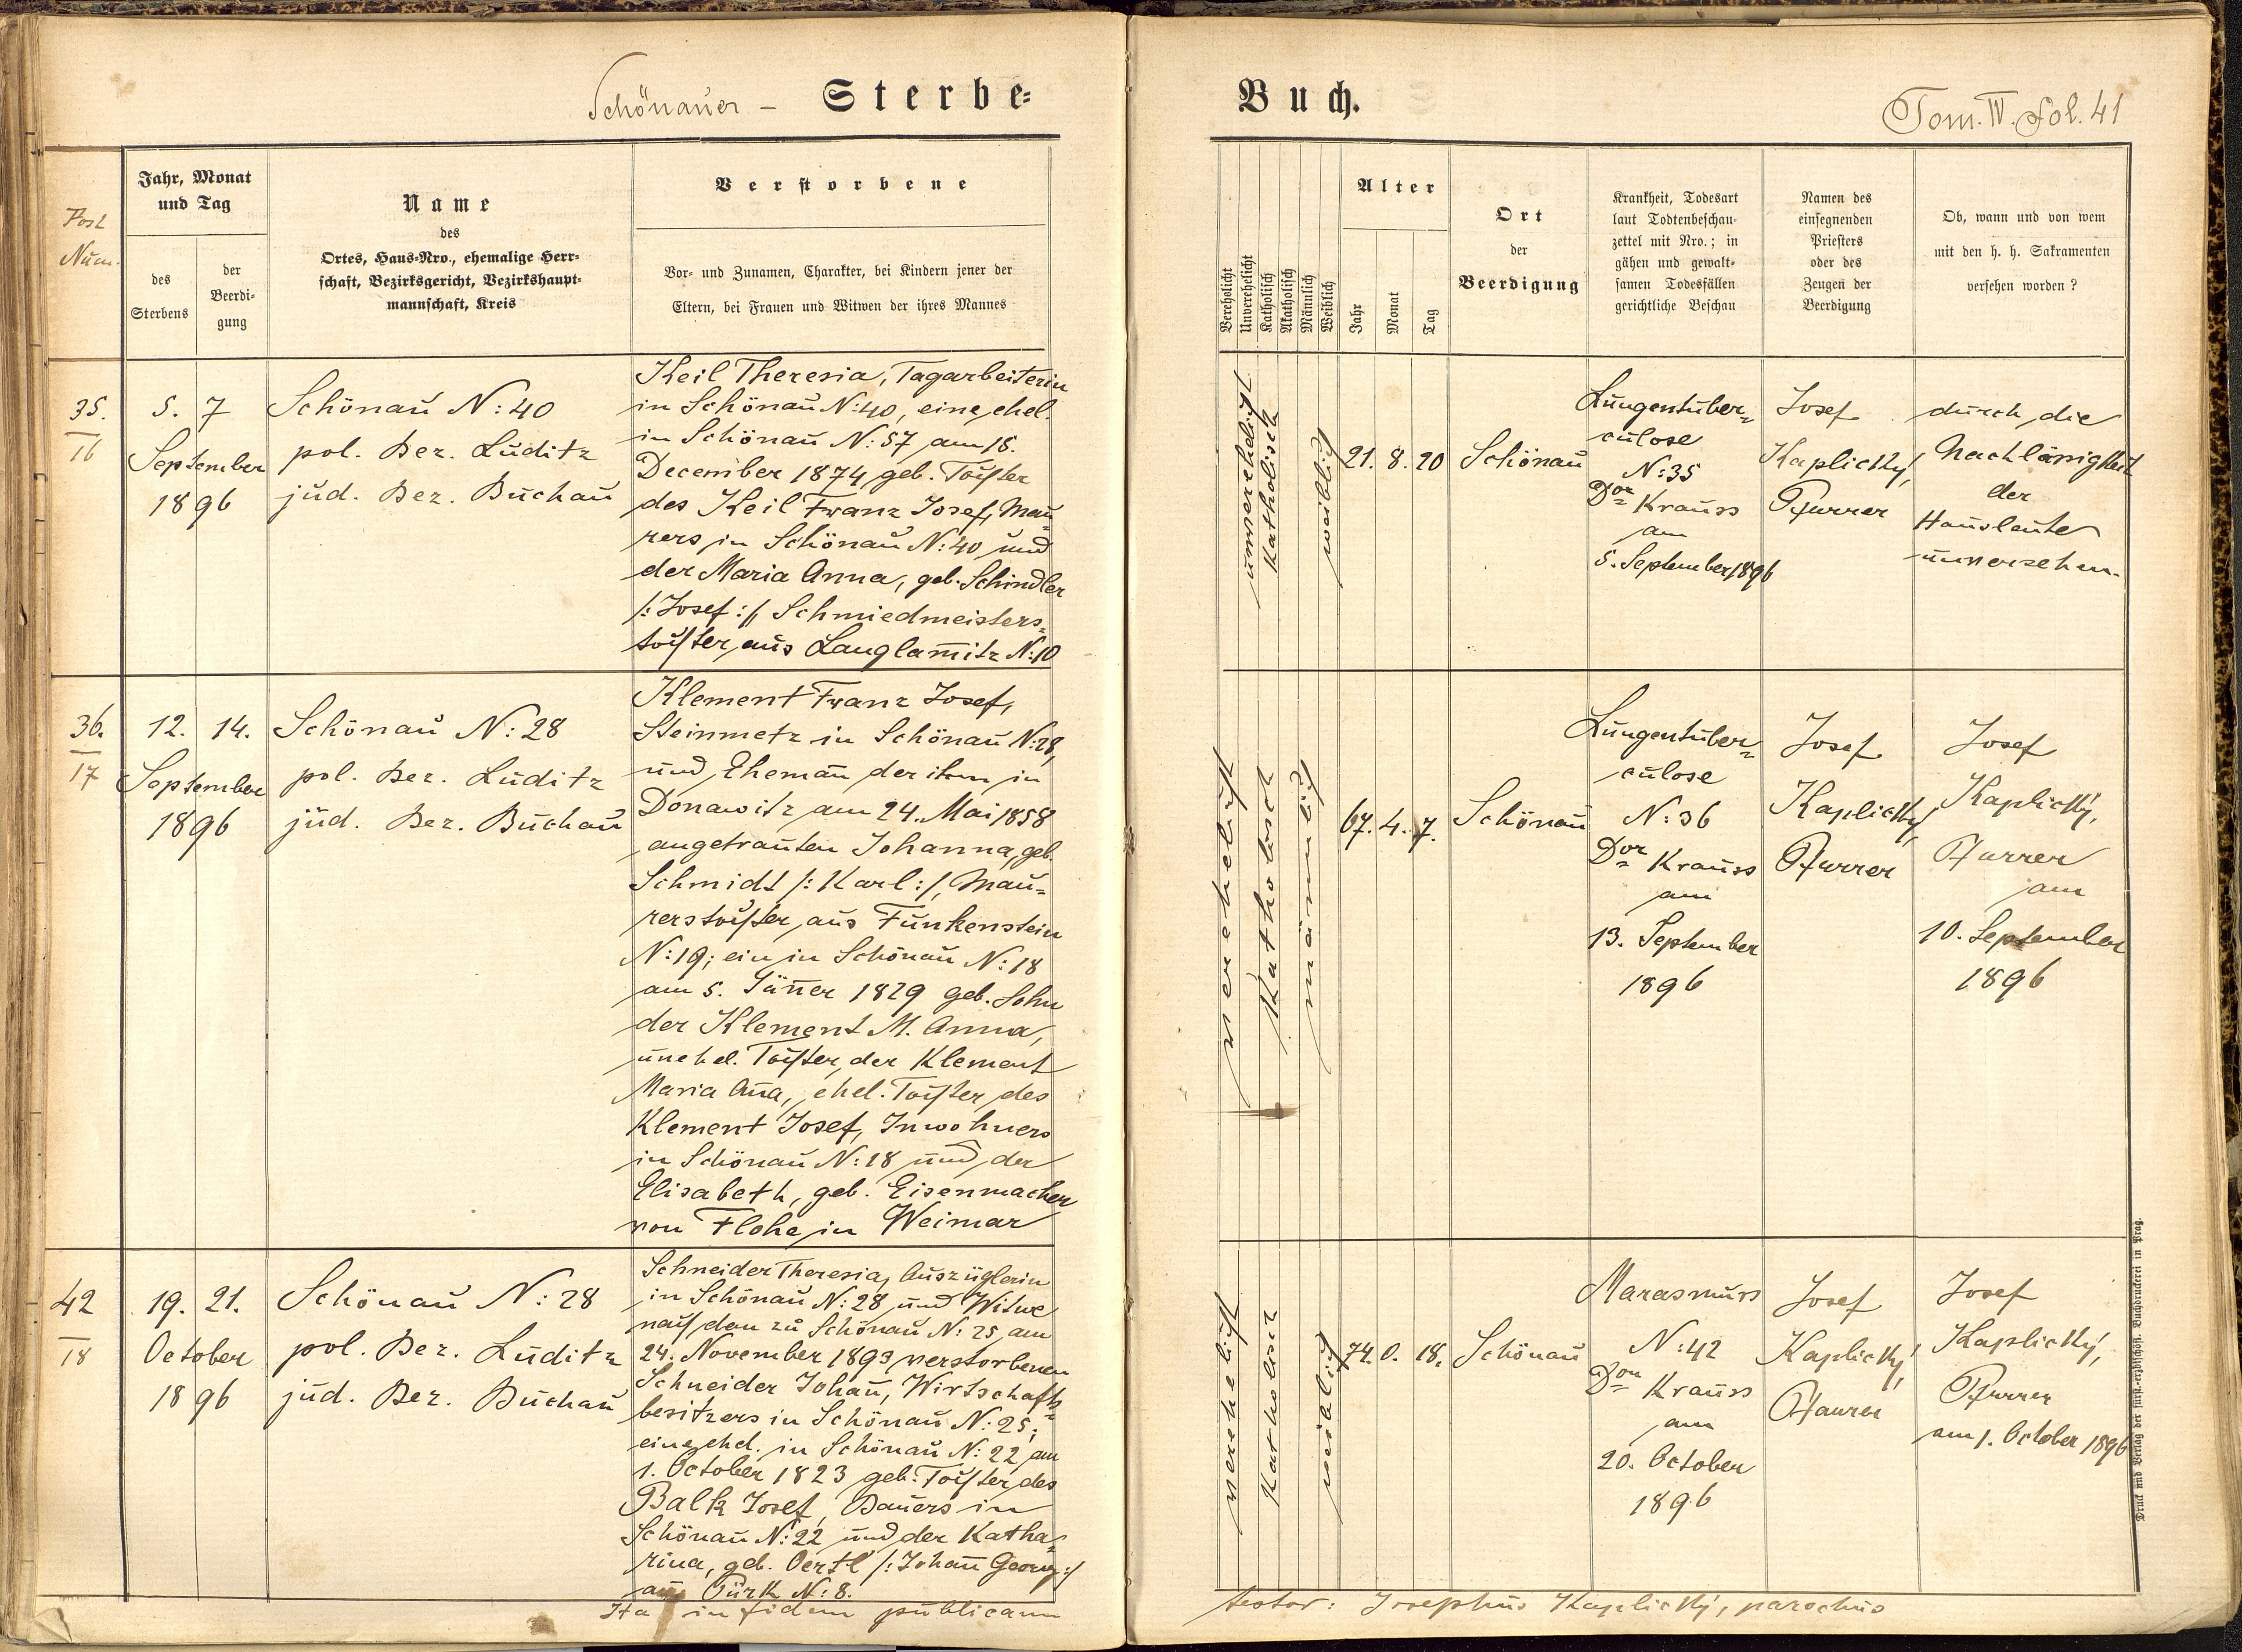 Schönauer - Sterbe=
Buch.
Tom. IV. fol. 41
Post
Num.
Jahr, Monat
und Tag
des
Sterbens
der
Beerdi-
gung
Name
des
Ortes, Haus-Nro., ehemalige Herr-
schaft, Bezirksgericht, Bezirkshaupt-
mannschaft, Kreis
Verstorbene
Vor- und Zunamen, Charakter, bei Kindern jener der
Eltern, bei Frauen und Witwen der ihres Mannes
Verehelicht
Unverehelicht
Katholisch
Akatholisch
Männlich
Weiblich
Alter
Jahr
Monat
Tag
Ort
der
Beerdigung
Krankheit, Todesart
laut Todtenbeschau-
zettel mit Nro.; in
gähen und gewalt-
samen Todesfällen
gerichtliche Beschau
Namen des
einsegnenden
Priesters
oder des
Zeugen der
Beerdigung
Ob, wann und von wem
mit den h. h. Sakramenten
versehen worden?
35.
16
5. 7
September
1896
Schönau N: 40
pol. Bez. Luditz
jud. Bez. Buchau
Keil Theresia, Tagarbeiterin
in Schönau N:40, eine ehel.
in Schönau N:57 am 15.
December 1874 geb. Tochter
des Keil Franz Josef, Mau=
rers in Schönau N:40 und
der Maria Anna, geb. Schindler
/: Josef :/, Schmiedmeisters=
tochter aus Langlamitz N:10
unverehelicht
Katholisch
weiblich
21. 8. 20
Schönau
Lungentuber=
culose
N:35
Dor Krauss
am
5. September 1896
Josef
Kaplický,
Pfarrer
durch die
Nachläsigkeit
der
Hausleute
unversehen.
36.
17
12. 14.
September
1896
Schönau N: 28
pol. Bez. Luditz
jud. Bez. Buchau
Klement Franz Josef,
Steinmetz in Schönau N:28,
und Ehemañ der ihm in
Donawitz am 24. Mai 1858
angetrauten Johanna, geb.
Schmidt /: Karl :/, Mau=
rerstochter aus Funkenstein
N:19; ein in Schönau N:18
am 5. Jäñer 1829 geb. Sohn
der Klement M. Anna,
unehel. Tochter der Klement
Maria Aña, ehel. Tochter des
Klement Josef, Inwohners
in Schönau N:18 und der
Elisabeth, geb. Eisenmacher
von Flohe in Weimar
verehelicht
Katholisch
männlich
67. 4. 7.
Schönau
Lungentuber=
culose
N: 36
Dor Krauss
am
13. September
1896
Josef
Kaplický,
Pfarrer
Josef
Kaplický,
Pfarrer
am
10. September
1896
42
18
19. 21.
October
1896
Schönau N: 28
pol. Bez. Luditz
jud. Bez. Buchau
Schneider Theresia, Auszüglerin
in Schönau N: 28 und Witwe
nach dem zu Schönau N: 25 am
24. November 1893 verstorbenen
Schneider Johañ, Wirtschafts=
besitzers in Schönau N: 25;
eine ehel. in Schönau N: 22 am
1. October 1823 geb. Tochter des
Balk Josef, Bauers in
Schönau N: 22 und der Katha=
rina, geb. Oertl /: Johañ Georg :/
aus Pürk N: 8.
verehelicht
Katholisch
weiblich
74. 0. 18.
Schönau
Marasmuss
N: 42
Dor Krauss
am
20. October
1896
Josef
Kaplický,
Pfarrer
Josef
Kaplický,
Pfarrer
am 1. October 1896
Ita in fidem publicam
testor: Josephus Kaplický, parochus
Druck und Verlag der fürst.-erzbischöfl. Buchdruckerei in Prag.